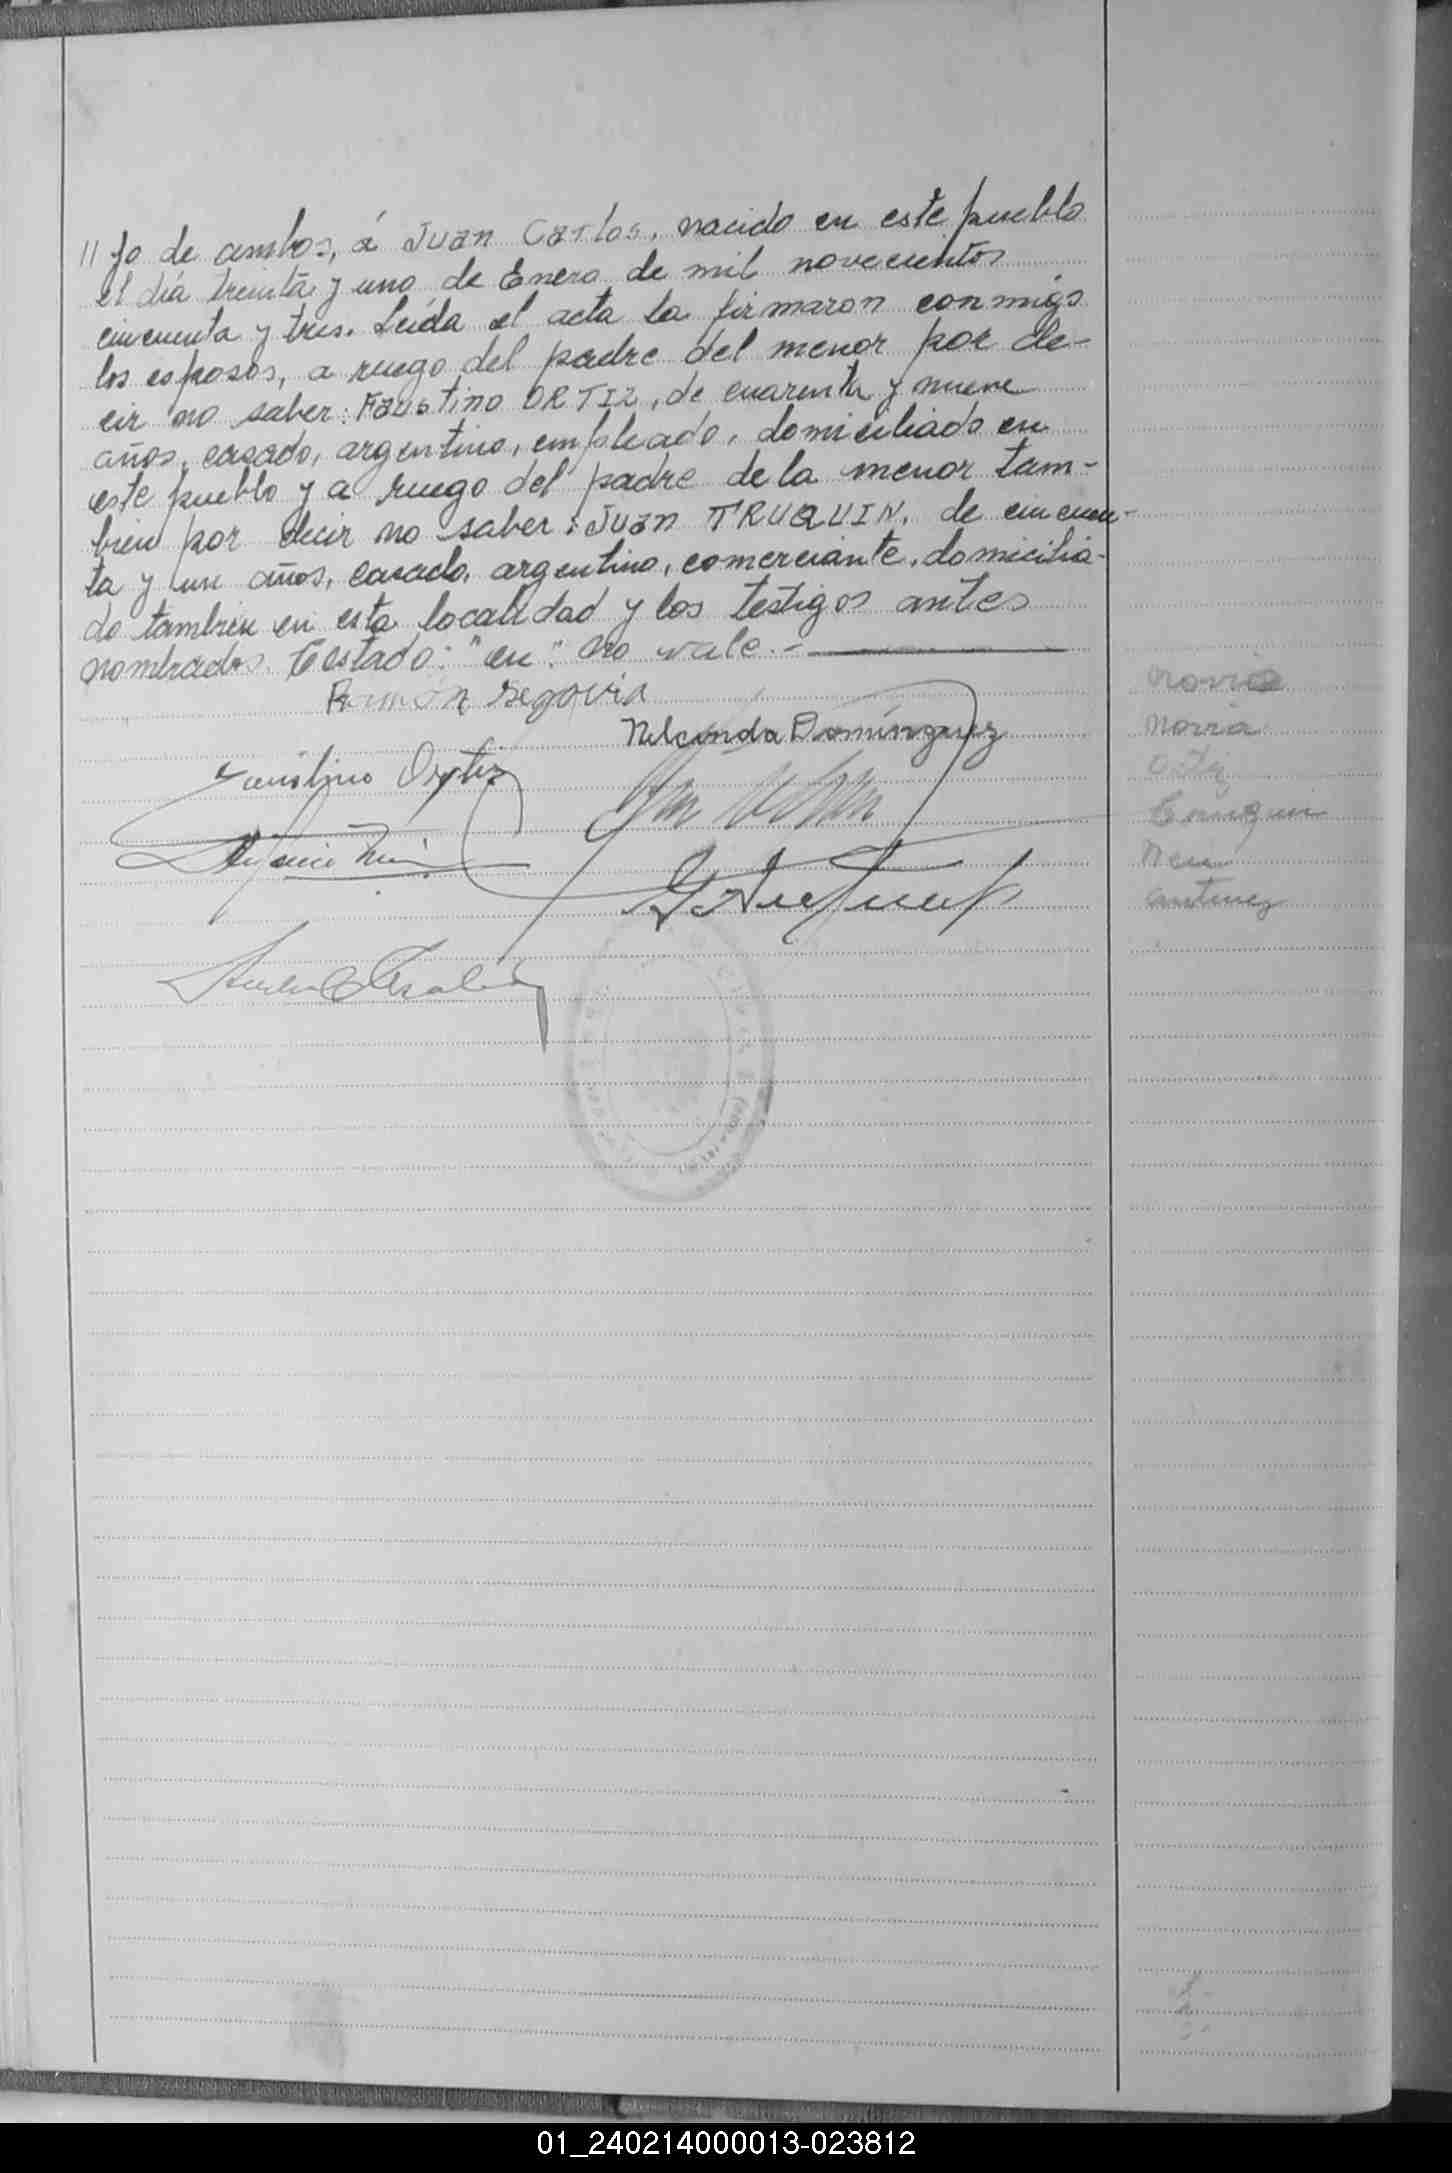 //jo de ambos, á Juan Carlos, nacido en este pueblo
el día treinta y uno de Enero de mil novecientos
cincuenta y tres. Leída el acta la firmaron conmigo
los esposos, a ruego del padre del menor por de-
cir no saber: Faustino ORTIZ, de cuarenta y nueve
años, casado, argentino, empleado, domiciliado en
este pueblo y a ruego del padre de la menor tam-
bien por decir no saber: Juan TRUQUIN, de cincuen-
ta y un años, casado, argentino, comerciante, domicilia-
do tambien en esta localidad y los testigos antes
nombrados. Testado: "en": No vale.-
Ramón Segovia
Nelcinda Domínguez
Faustino Ortiz
novio
novia
Ortiz
Truquin
01_240214000013-023812